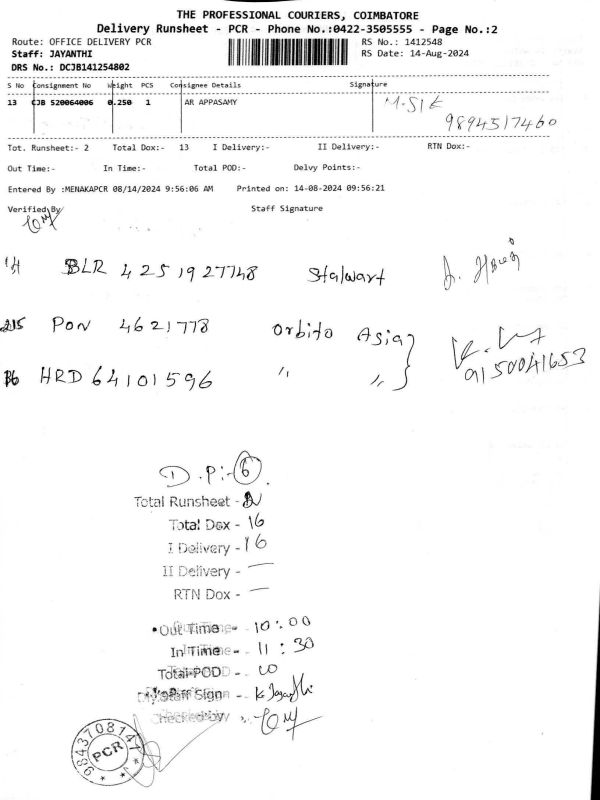 THE PROFESSIONAL COURIERS, COIMBATORE
Delivery Runsheet - PCR - Phone No.:0422-3505555 - Page No.:2
Route: OFFICE DELIVERY PCR RS No.: 1412548
Staff: JAYANTHI RS Date: 14-Aug-2024
DRS No.: DCJB141254802
S No Consignment No Weight PCS Consignee Details Signature
13 CJB 520064006 0.250 1 AR APPASAMY
9894517460
Tot. Runsheet:- 2 Total Dox:- 13 I Delivery:- II Delivery:- RTN Dox:-
Out Time:- In Time:- Total POD:- Delvy Points:-
Entered By :MENAKAPCR 08/14/2024 9:56:06 AM Printed on: 14-08-2024 09:56:21
Verified By Staff Signature
14 BLR 4251927748 Stalwart
15 PON 4621778 Orbito Asia
16 HRD 64101596 " "
9150041653
D.P:- 6
Total Runsheet - 2
Total Dox - 16
I Delivery - 16
II Delivery - —
RTN Dox - —
Out Time - 10:00
In Time - 11:30
Total POD -
Dly.Staff Sign -
Checked by
9843708147
PCR